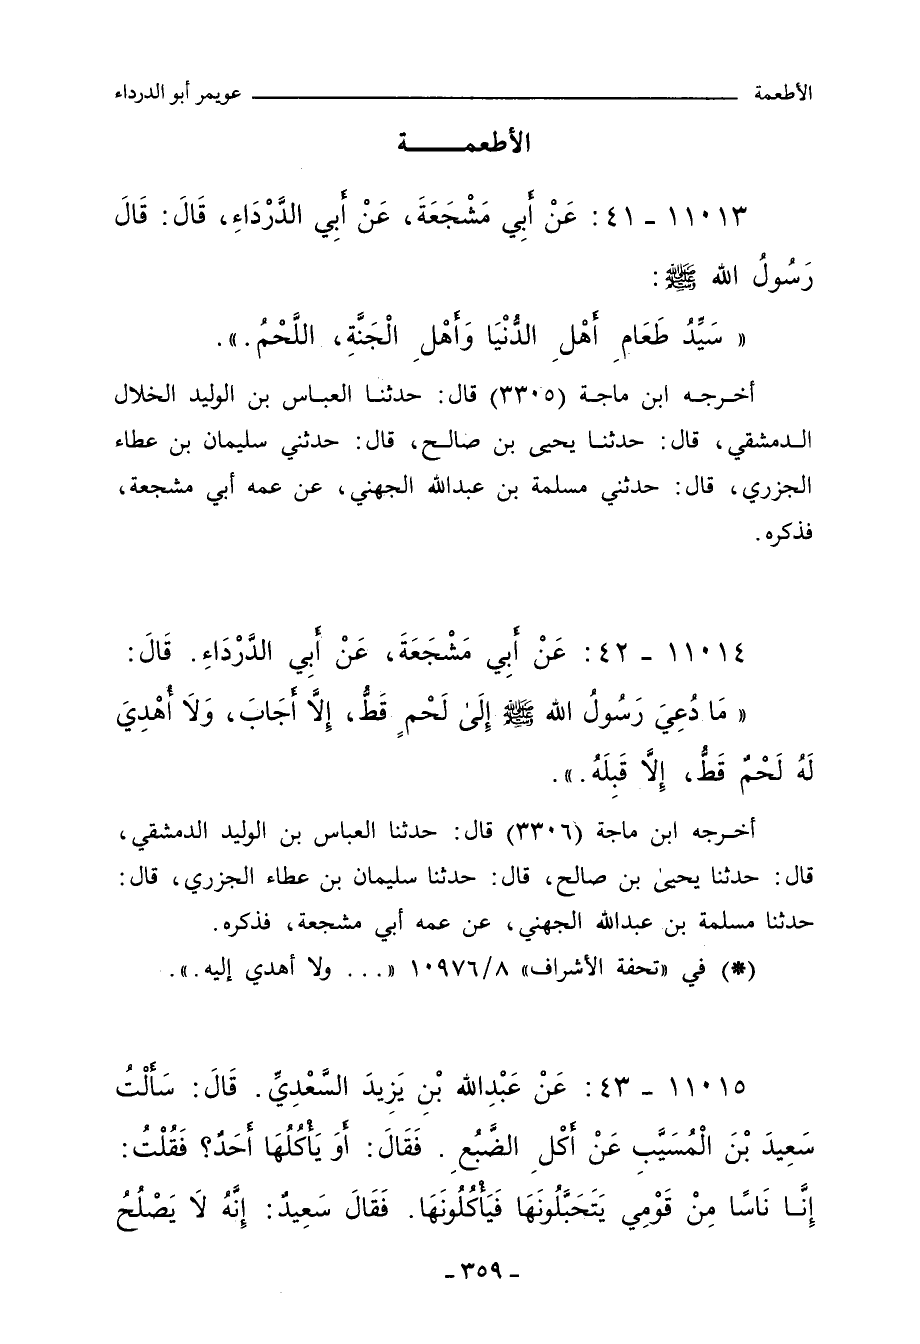 الأطعمة ــــــــــــ عويمر أبو الدرداء
الأطعمـــــة
١١٠١٣ - ٤١ : عَنْ أَبِي مَشْجَعَةَ، عَنْ أَبِي الدَّرْدَاءِ، قَالَ: قَالَ
رَسُولُ الله ﷺ :
« سَيِّدُ طَعَامِ أَهْلِ الدُّنْيَا وَأَهْلِ الْجَنَّةِ، اللَّحْمُ.».
أخـرجـه ابن ماجـة (٣٣٠٥) قال: حدثنـا العبـاس بن الوليد الخلال
الـدمشقي، قال: حدثنـا يحيى بن صالـح، قال: حدثني سليمان بن عطاء
الجزري، قال: حدثني مسلمة بن عبدالله الجهني، عن عمه أبي مشجعة،
فذكره.
١١٠١٤ - ٤٢ : عَنْ أَبِي مَشْجَعَةَ، عَنْ أَبِي الدَّرْدَاءِ. قَالَ:
« مَا دُعِيَ رَسُولُ الله ﷺ إِلَىٰ لَحْمٍ قَطُّ، إِلَّا أَجَابَ، وَلَا أُهْدِيَ
لَهُ لَحْمٌ قَطُّ، إِلَّا قَبِلَهُ.».
أخـرجه ابن ماجة (٣٣٠٦) قال: حدثنا العباس بن الوليد الدمشقي،
قال: حدثنا يحيىٰ بن صالح، قال: حدثنا سليمان بن عطاء الجزري، قال:
حدثنا مسلمة بن عبدالله الجهني، عن عمه أبي مشجعة، فذكره.
(*) في «تحفة الأشراف» ١٠٩٧٦/٨ «... ولا أهدي إليه.».
١١٠١٥ - ٤٣ : عَنْ عَبْدِالله بْنِ يَزِيدَ السَّعْدِيِّ. قَالَ: سَأَلْتُ
سَعِيدَ بْنَ الْمُسَيَّبِ عَنْ أَكْلِ الضَّبُعِ. فَقَالَ: أَوَ يَأْكُلُهَا أَحَدٌ؟ فَقُلْتُ:
إِنَّـا نَاسًا مِنْ قَوْمِي يَتَحَبَّلُونَهَا فَيَأْكُلُونَهَا. فَقَالَ سَعِيدٌ: إِنَّهُ لَا يَصْلُحُ
- ٣٥٩ -